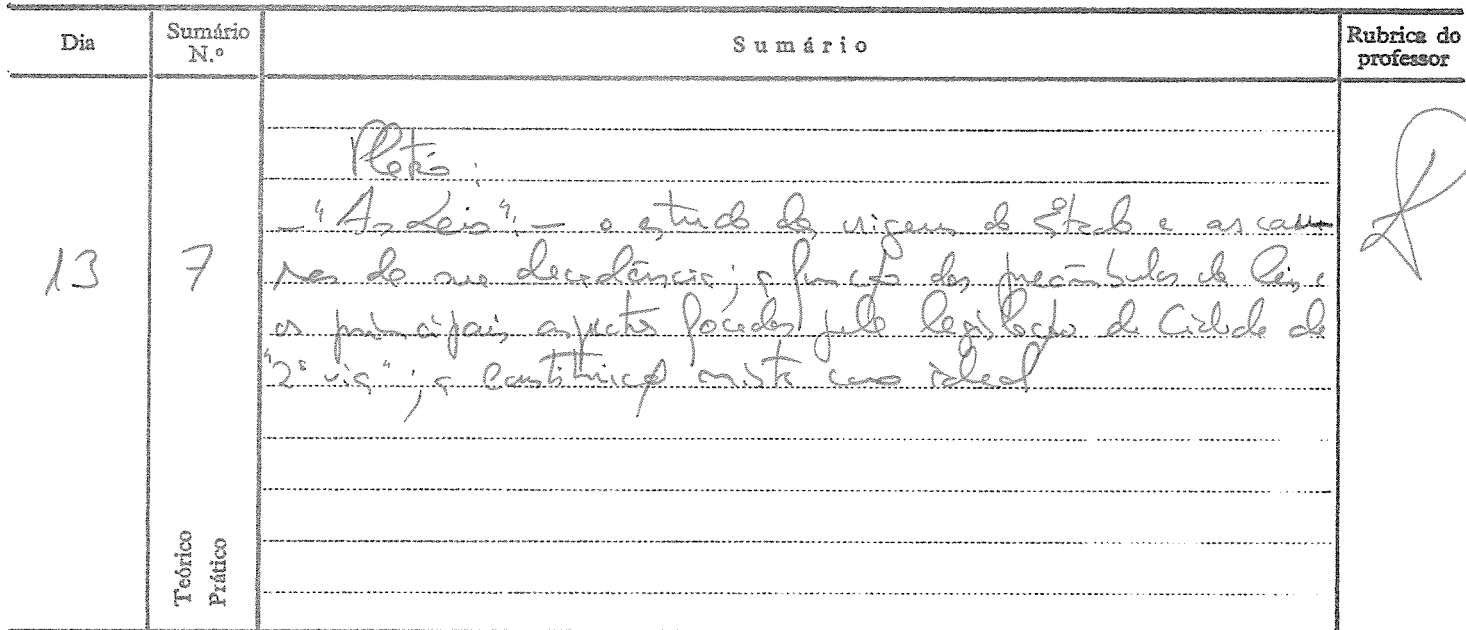 Dia
Sumário N.º
Sumário
Rubrica do professor
13
7
Platão.
- "As Leis": - o estudo das origens do Estado e as cau
sas da sua decadência; a função dos preâmbulos de leis e
os principais aspectos focados pela legislação da Cidade de
"2ª via"; a Constituição mista como ideal
Teórico
Prático